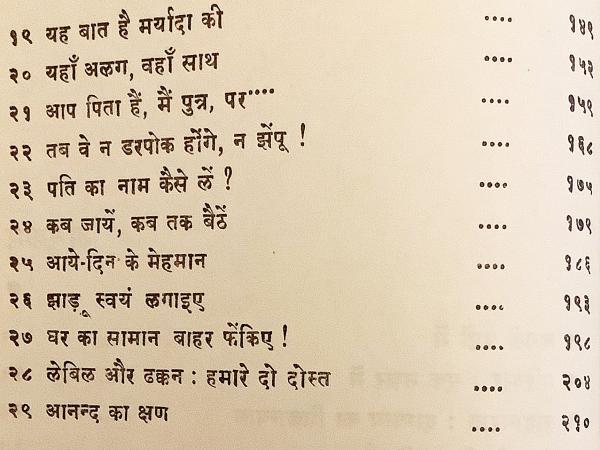 १९ यह बात है मर्यादा की .... १४९
२० यहाँ अलग, वहाँ साथ .... १५३
२१ आप पिता हैं, मैं पुत्र, पर···· .... १५९
२२ तब वे न डरपोक होंगे, न झेंपू ! .... १६८
२३ पति का नाम कैसे लें ? .... १७५
२४ कब जायें, कब तक बैठें .... १७९
२५ आये-दिन के मेहमान .... १८६
२६ झाड़ू स्वयं लगाइए .... १९३
२७ घर का सामान बाहर फेंकिए ! .... १९८
२८ लेबिल और ढक्कन : हमारे दो दोस्त .... २०४
२९ आनन्द का क्षण .... २१०